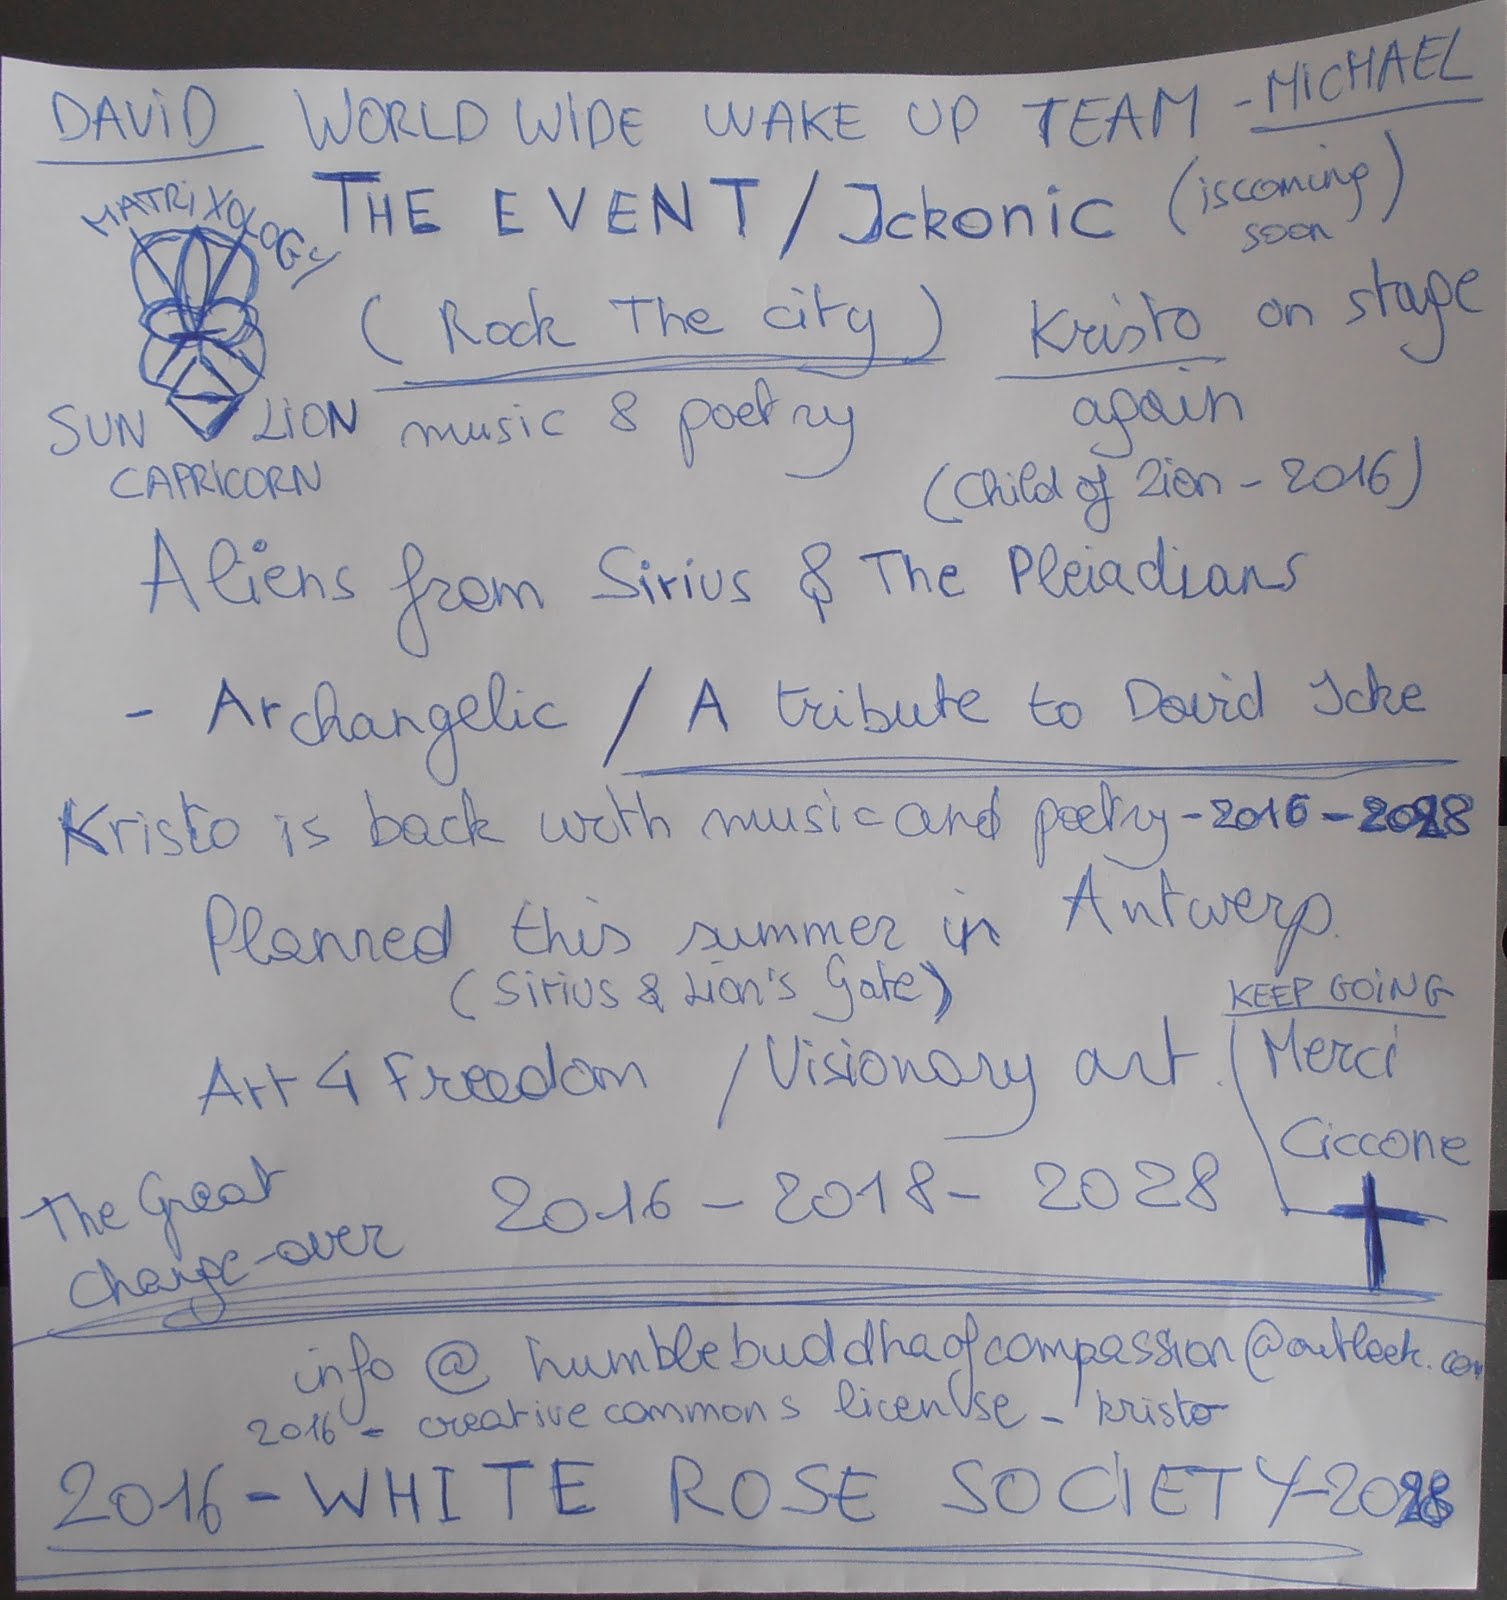 DAViD WORLD WIDE WAKE UP TEAM - MiCHAEL
MATRiXOLOGY
THE EVENT / Ickonic (is coming soon)
(Rock The city) Kristo on stage
SUN LiON music & poetry again
CAPRICORN
(Child of Zion - 2016)
Aliens from Sirius & The Pleiadians
- Archangelic / A tribute to David Icke
Kristo is back with music and poetry - 2016 - 2028
Planned this summer in Antwerp.
(Sirius & Lion's Gate)
KEEP GOiNG
Art 4 Freedom / Visionary art.
Merci
Ciccone
The Great
Change-over
2016 - 2018 - 2028
info @ humblebuddhaofcompassion@outlook.com
2016 - creative commons license - kristo
2016 - WHITE ROSE SOCIETY - 2028